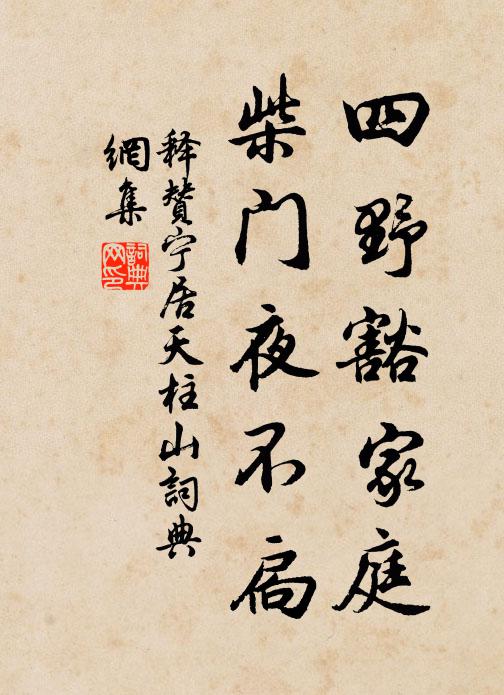 四野豁家庭
柴门夜不扃
释赞宁居天柱山詞典
網集
詞典
网印